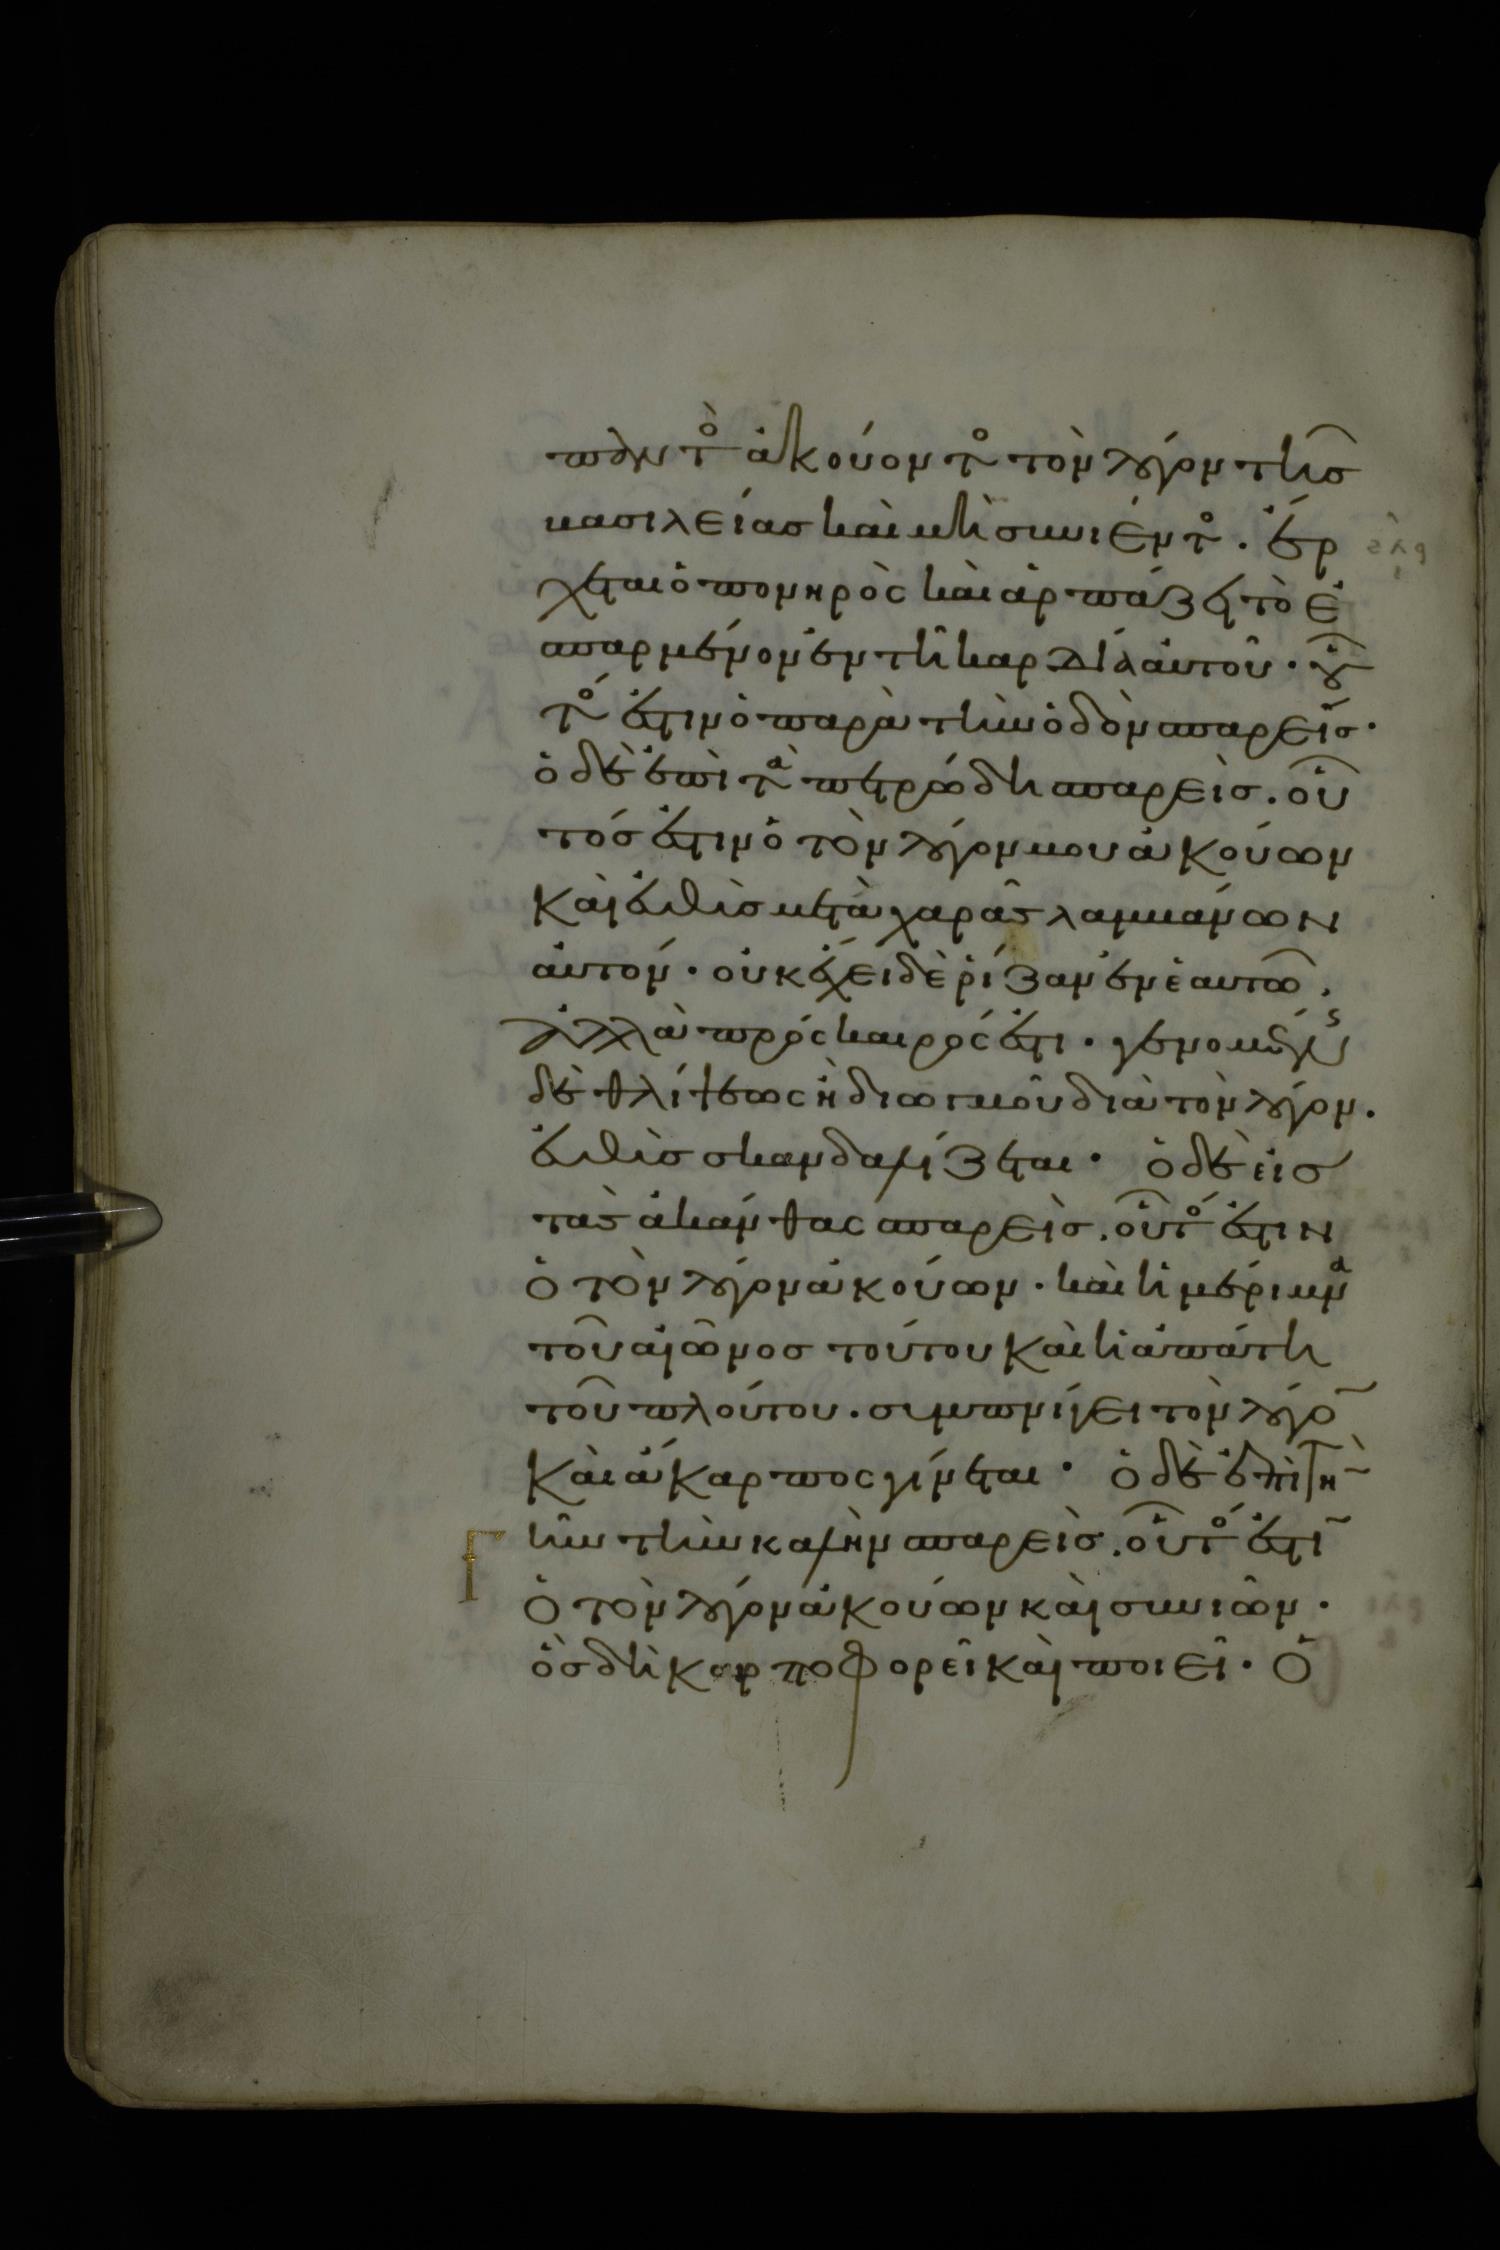 παντὸς ἀκούοντος τὸν λόγον τῆς
βασιλείας καὶ μὴ συνιέντος. ἔρ
χεται ὁ πονηρὸς καὶ ἁρπάζει τὸ ἐ
σπαρμένον ἐν τῆ καρδία αὐτοῦ. οὗ
τός ἐστιν ὁ παρὰ τὴν ὁδὸν σπαρείς.
ὁ δὲ ἐπὶ τὰ πετρώδη σπαρεὶς. οὗ
τός ἐστιν ὁ τὸν λόγον μου ἀκούων
καὶ εὐθὺς μετὰ χαρᾶς λαμβάνων
αὐτόν. οὐκ ἔχει δὲ ῥίζαν ἐν ἑαυτῶ,
ἀλλὰ πρόσκαιρός ἐστι. γενομένης
δὲ θλίψεως ἢ διωγμοῦ διὰ τὸν λόγον.
εὐθὺς σκανδαλίζεται. ὁ δὲ εἰς
τὰς ἀκάνθας σπαρεὶς. οὗτός ἐστιν
ὁ τὸν λόγον ἀκούων. καὶ ἡ μέριμνα
τοῦ αἰῶνος τούτου καὶ ἡ ἀπάτη
τοῦ πλούτου. συμπνίγει τὸν λόγο̄
καὶ ἄκαρπος γίνεται. ὁ δὲ ἐπὶ τὴν
γῆν τὴν καλὴν σπαρεὶς. οὗτός ἐστῑ
ὁ τὸν λόγον ἀκούων καὶ συνιῶν.
ὃς δὴ καρποφορεῖ καὶ ποιεῖ. ὃ